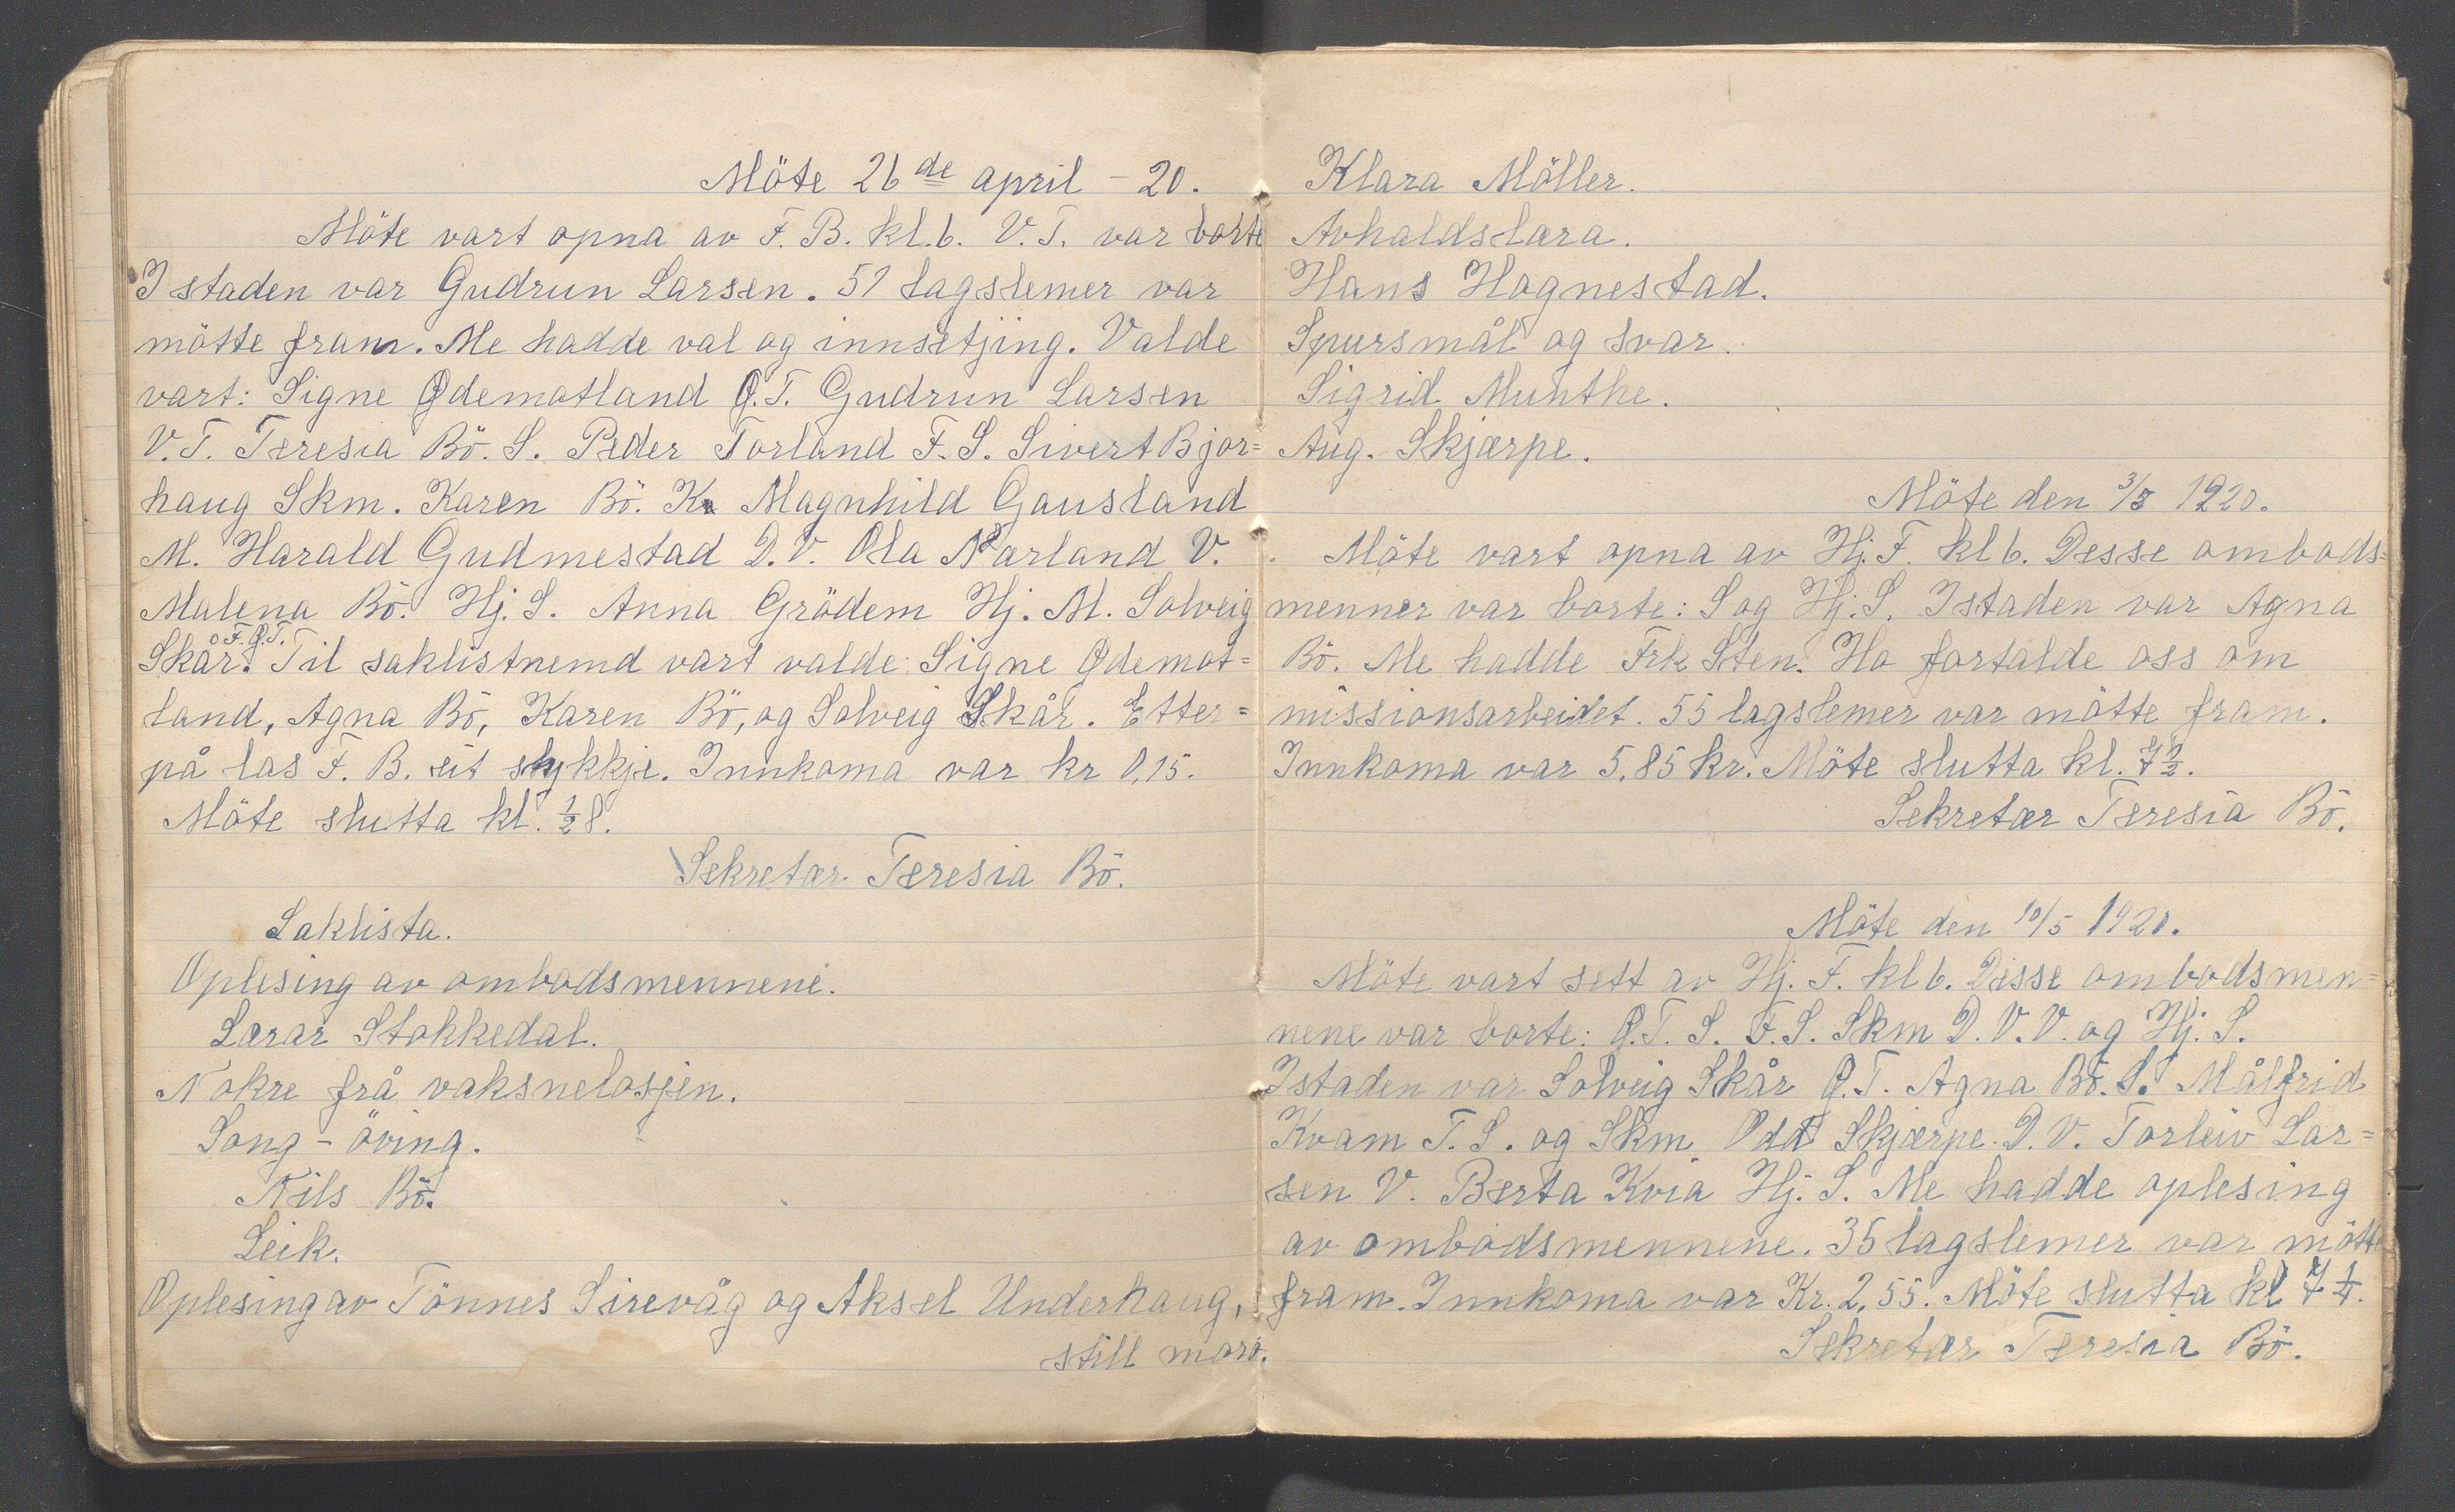 Möte 26de april - 20.
Möte vart opna av F. B. kl. 6. V. T. var borte
I staden var Gudrun Larsen. 51 lagslemer var
mötte fram. Me hadde val og innsetjing. Valde
vart: Signe Ødemotland Ø.T. Gudrun Larsen
V. T. Teresia Bö. S. Peder Torland F. S. Sivert Bjor=
haug Skm. Karen Bö. K. Magnhild Gausland
M. Harald Gudmestad D. V. Ola Nærland V.
Malena Bö. Hj. S. Anna Grödem Hj. M. Solveig
Skår. F. Ø.T. Til saklistnemd vart valde: Signe Ødemot=
land, Agna Bö, Karen Bö, og Solveig Skår. Etter=
på las F. B. eit stykkje. Innkoma var kr 0,15.
Möte slutta kl. ½ 8.
Sekretær Teresia Bö.
Saklista.
Oplesing av ombodsmennene.
Lærar Stokkedal.
Nokre frå vaksnelosjen.
Song - öving.
Nils Bö.
Leik.
Oplesing av Tönnes Sirevåg og Aksel Underhaug,
still moro.
Klara Möller.
Avhaldslæra.
Hans Hognestad.
Spursmål og svar.
Sigrid Munthe.
Aug. Skjærpe.
Möte den 3/5 1920.
Möte vart opna av Hj. F. kl 6. Desse ombods=
menner var borte: S og Hj. S. Istaden var Agna
Bö. Me hadde Frk Sten. Ho fortalde oss om
missionsarbeidet. 55 lagslemer var mötte fram.
Innkoma var 5,85 kr. Möte slutta kl. 7½.
Sekretær Teresia Bö.
Möte den 10/5 1920.
Möte vart sett av Hj. F. kl 6. Disse ombodsmen=
nene var borte: Ø. T. S. F. S. Skm D. V. V. og Hj. S.
Istaden var Solveig Skår Ø. T. Agna Bö. S. Målfrid
Kvam F. S. og Skm. Odd Skjærpe. D. V. Torleiv Lar=
sen V. Berta Kvia Hj. S. Me hadde oplesing
av ombodsmennene. 35 lagslemer var mötte
fram. Innkoma var Kr. 2,55. Möte slutta kl 7¼.
Sekretær Teresia Bö.